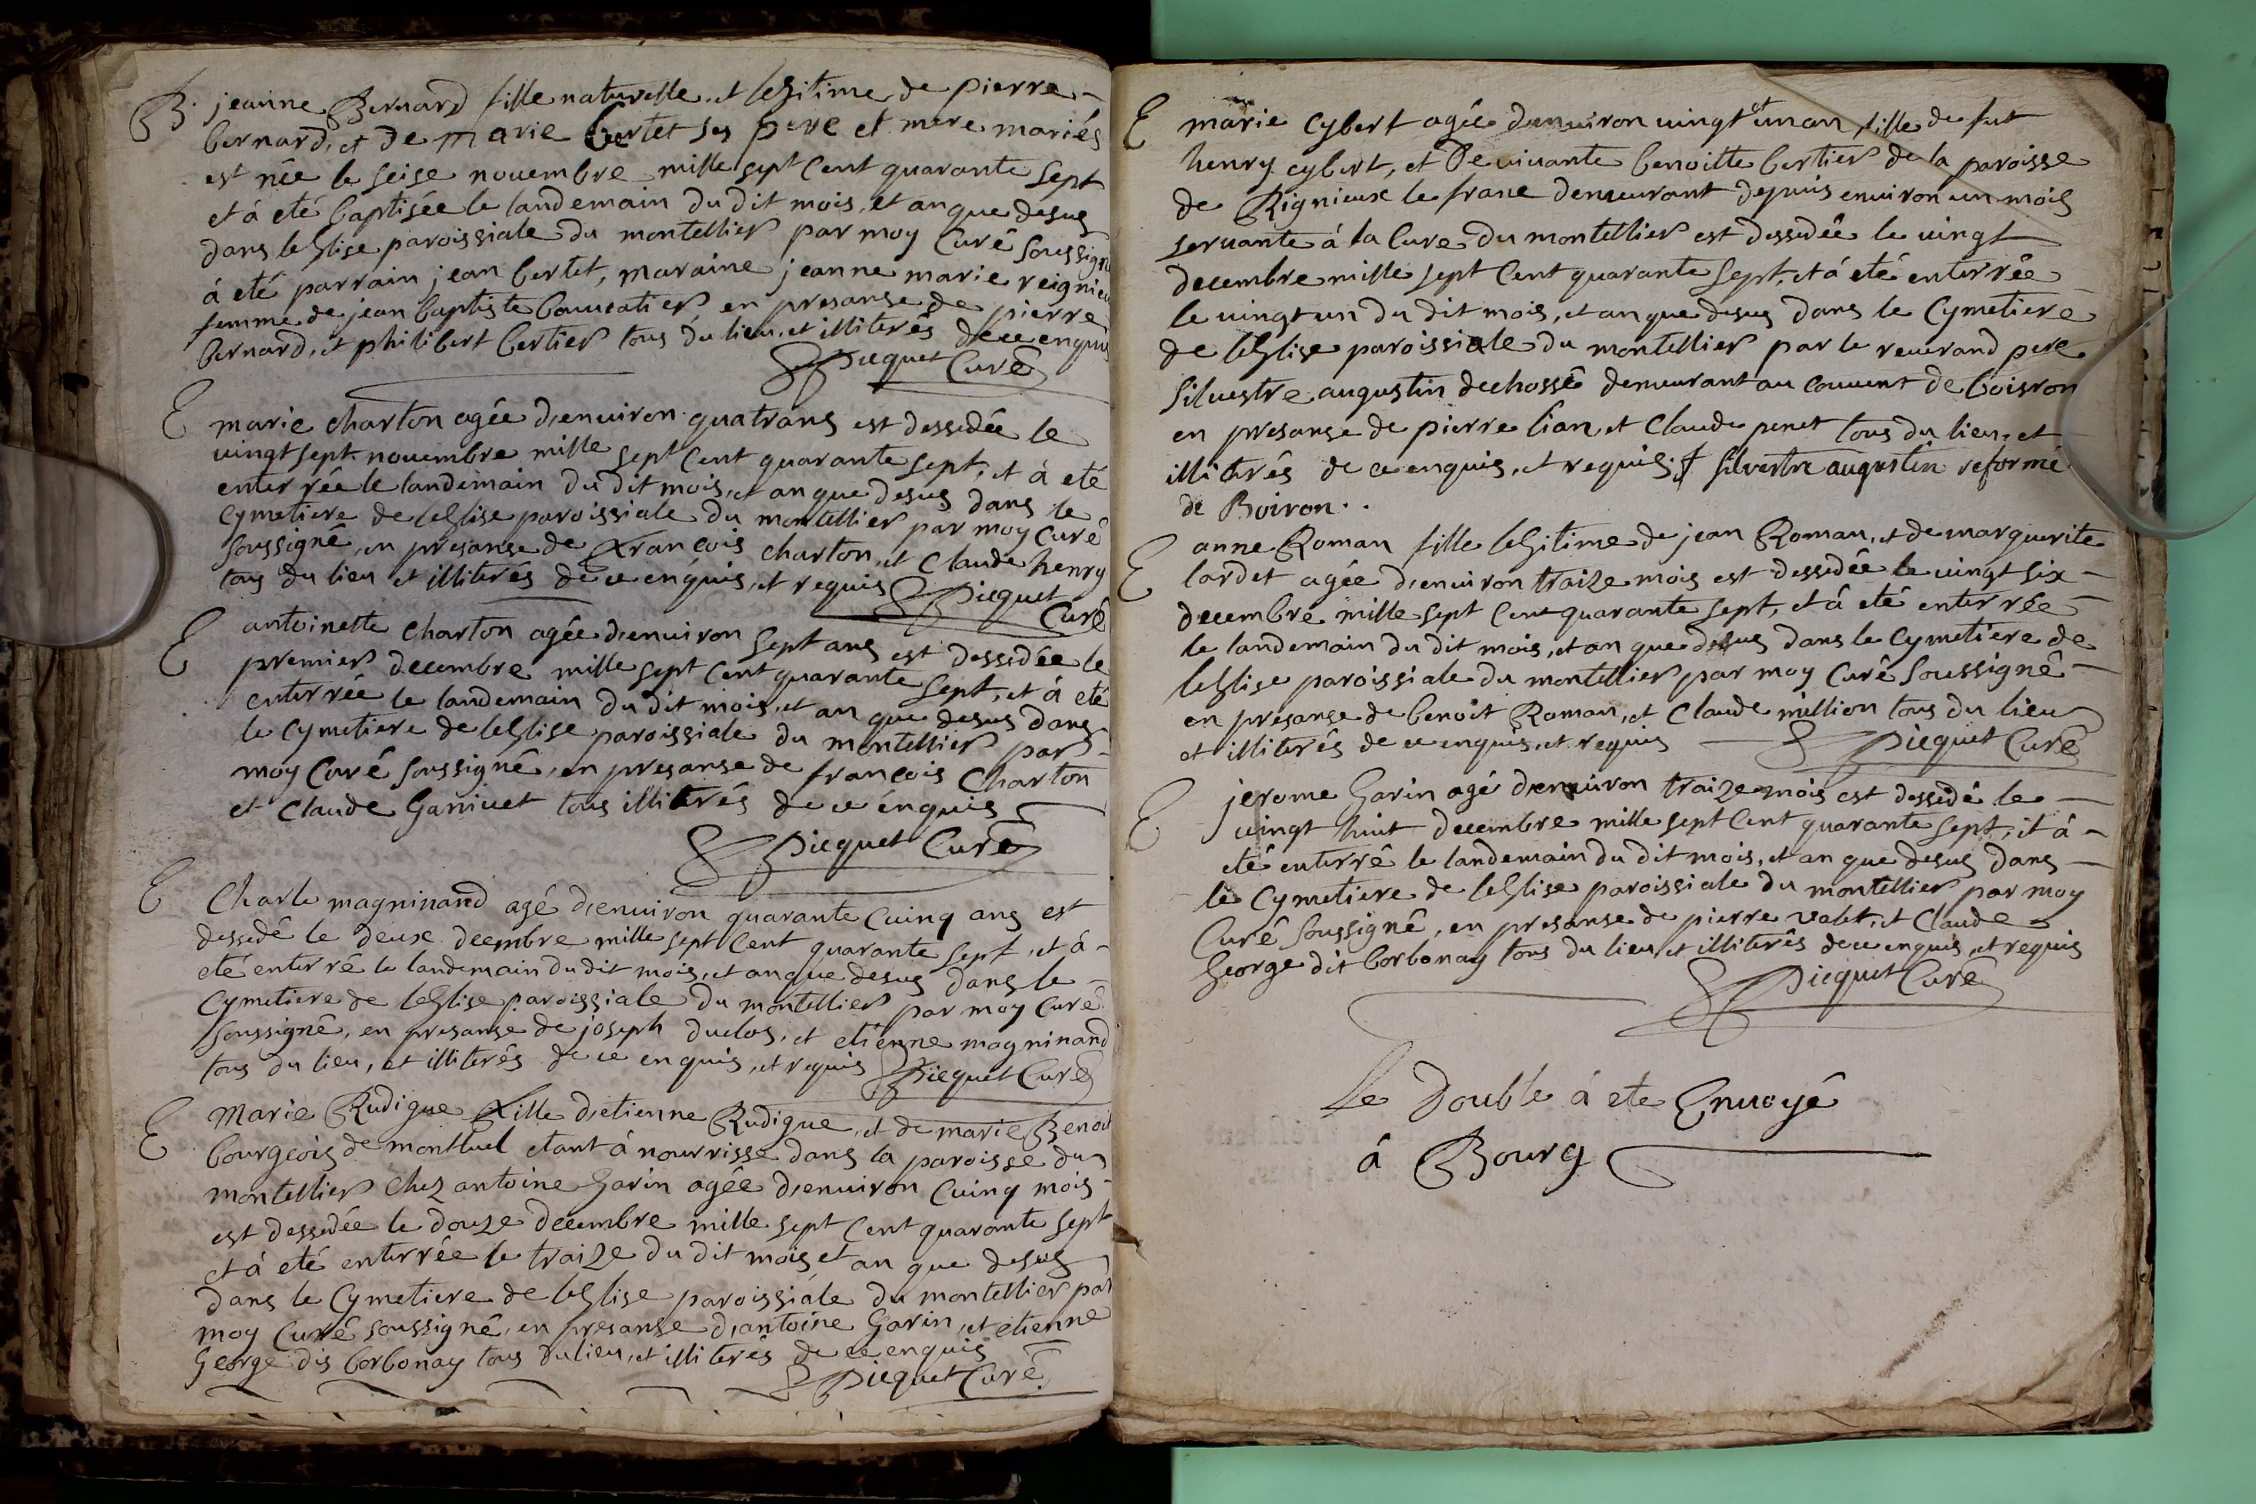 B. jeanne Bernard fille naturelle et lesitime de pierre
bernard, et de marie bertet ses pere et mere mariés
est née le seise nouembre mille sept cent quarante sept
et á eté baptisée le landemain du dit mois, et an que desus
dans leglise paroissiale du montellier par moy curé soussigné
á eté parrain jean bertet, maraine jeanne marie reignieu
femme de jean baptiste en presanse de pierre
bernard, et philibert bertier tous du lieu, et illiterés de ce enquis
Picquet Curé
E marie charton agée d'enuiron quatrans est dessedée le
uingt sept nouembre mille sept cent quarante sept, et á eté
enterrée le landemain du dit mois, et an que desus dans le
cymetiere de leglise paroissiale du montellier par moy curé
soussigné, en presanse de françois charton, et claude henry
tous du lieu et illiterés de ce enquis, et requis Picquet
Curé
E antoinette charton agée d'enuiron sept ans est dessedée le
premier decembre mille sept cent quarante sept, et á eté
enterrée le landemain du dit mois, et an que desus dans
le cymetiere de leglise paroissiale du montellier par
moy curé soussigné, en presanse de françois charton
et claude ganiuet tous illiterés de ce enquis
Picquet Curé
E Charle magninand agé d'enuiron quarante cuinq ans est
dessedé le deux decembre mille sept cent quarante sept, et á
eté enterré le landemain du dit mois, et an que desus dans le
cymetiere de leglise paroissiale du montellier par moy curé
soussigné, en presanse de joseph duclos, et etienne magninand
tous du lieu, et illiterés de ce enquis, et requis Picquet Curé
E Marie Rudigue fille d'etienne Rudigue, et de marie Benoit
bourgeois de montluel etant á nourrisse dans la paroisse du
montellier chez antoine Garin agée d'enuiron cuinq mois
est dessedée le douze decembre mille sept cent quarante sept
et á eté enterrée le traize du dit mois, et an que desus
dans le cymetiere de leglise paroissiale du montellier par
moy curé soussigné, en presanse d'antoine Garin, et etienne
George dis borbonay tous du lieu, et illiterés de ce enquis
Picquet Curé
E marie cybert agée d'enuiron uingt et un an fille de fut
henry cybert, et de uiuante benoitte bertier de la paroisse
de Rignieux le franc demeurant depuis enuiron un mois
seruante á la cure du montellier est dessedée le uingt
decembre mille sept cent quarante sept, et á eté enterrée
le uingt un du dit mois, et an que desus dans le cymetiere
de leglise paroissiale du montellier par le reuerand pere
siluestre augustin dechossé demeurant au couuent de boisron
en presanse de pierre lian, et claude penet tous du lieu, et
illiterés de ce enquis, et requis. f silvestre augustin reformé
de Boiron.
E anne Roman fille lesitime de jean Roman, et de marguerite
lardet agée d'enuiron traize mois est dessedée le uingt six
decembre mille sept cent quarante sept, et á eté enterrée
le landemain du dit mois, et an que desus dans le cymetiere de
leglise paroissiale du montellier par moy curé soussigné
en presanse de benoit Roman, et claude million tous du lieu
et illiterés de ce enquis, et requis Picquet Curé
E jerome Garin agé d'enuiron traize mois est dessedé le
uingt huit decembre mille sept cent quarante sept, et á
eté enterré le landemain du dit mois, et an que desus dans
le cymetiere de leglise paroissiale du montellier par moy
Curé soussigné, en presanse de pierre valet, et claude
George dit borbonay tous du lieu, et illiterés de ce enquis, et requis
Picquet Curé
Le Double á eté Envoyé
á Bourg